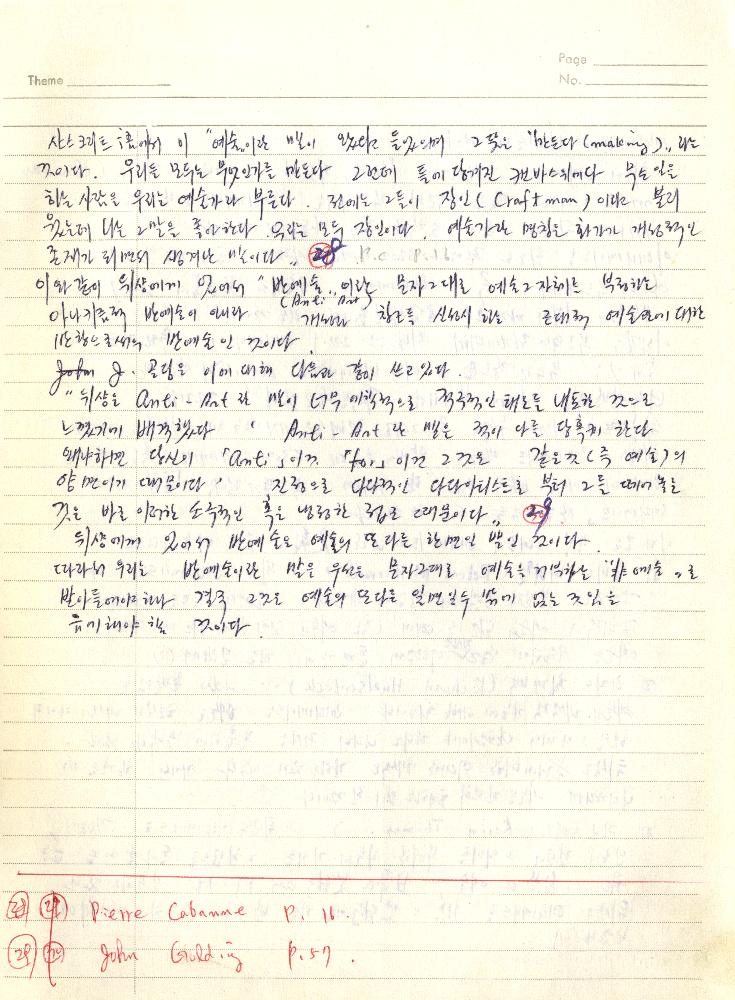 Page
Theme No.
산스크리트어에서 이 "예술"이란 말이 왔다고 들었으며 그 뜻은 "만든다 (making)„ 라는
것이다. 우리들 모두는 무엇인가를 만든다 그런데 틀에 당겨진 캔바스위에다 무슨 일을
하는 사람을 우리는 예술가라 부른다. 전에는 그들이 장인 (Craftman) 이라고 불리
웠는데 나는 그말을 좋아한다. 우리는 모두 장인이다. 예술가란 명칭은 화가가 개성적인
존재가 되면서 생겨난 말이다 „ 28 P.C P.16
이와같이 뒤샹에게 있어서 "반예술„ 이란 문자그대로 예술그자체를 부정하는
(Anti Art)
아나키즘적 반예술이 아니라 개념과 창조를 신성시 하는 근대적 예술관에 대한
반항으로서의 반예술인 것이다.
John J. 골딩은 이에 대해 다음과 같이 쓰고 있다.
"뒤샹은 Anti-Art 란 말이 너무 적극적인 태도를 내포한 것으로
느꼈기에 배격했다 ' Anti-Art 란 말은 적이 나를 당혹케 한다
왜냐하면 당신이 「anti」이건 「for」이건 그것은 같은것 (즉 예술)의
양면이기 때문이다 ' 진정으로 다다적인 다다아티스트로 부터 그를 떼어놓은
것은 바로 이러한 소극적인 혹은 냉랭한 때문이다„ 29
뒤샹에게 있어서 반예술은 예술의 또다른 한면인 뿐인 것이다.
따라서 우리는 반예술이란 말을 우선은 문자그대로 예술을 거부하는 "非예술„로
받아들여야하나 결국 그것은 예술의 또다른 일면일수 밖에 없는 것임을
유의해야 할 것이다.
28 Pierre Cabanne P. 16.
29 John Golding P. 57.